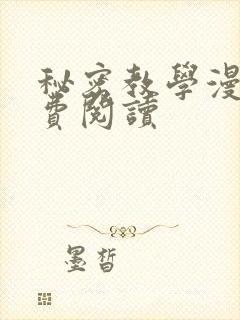 秘密教學漫
費閱讀
墨皙